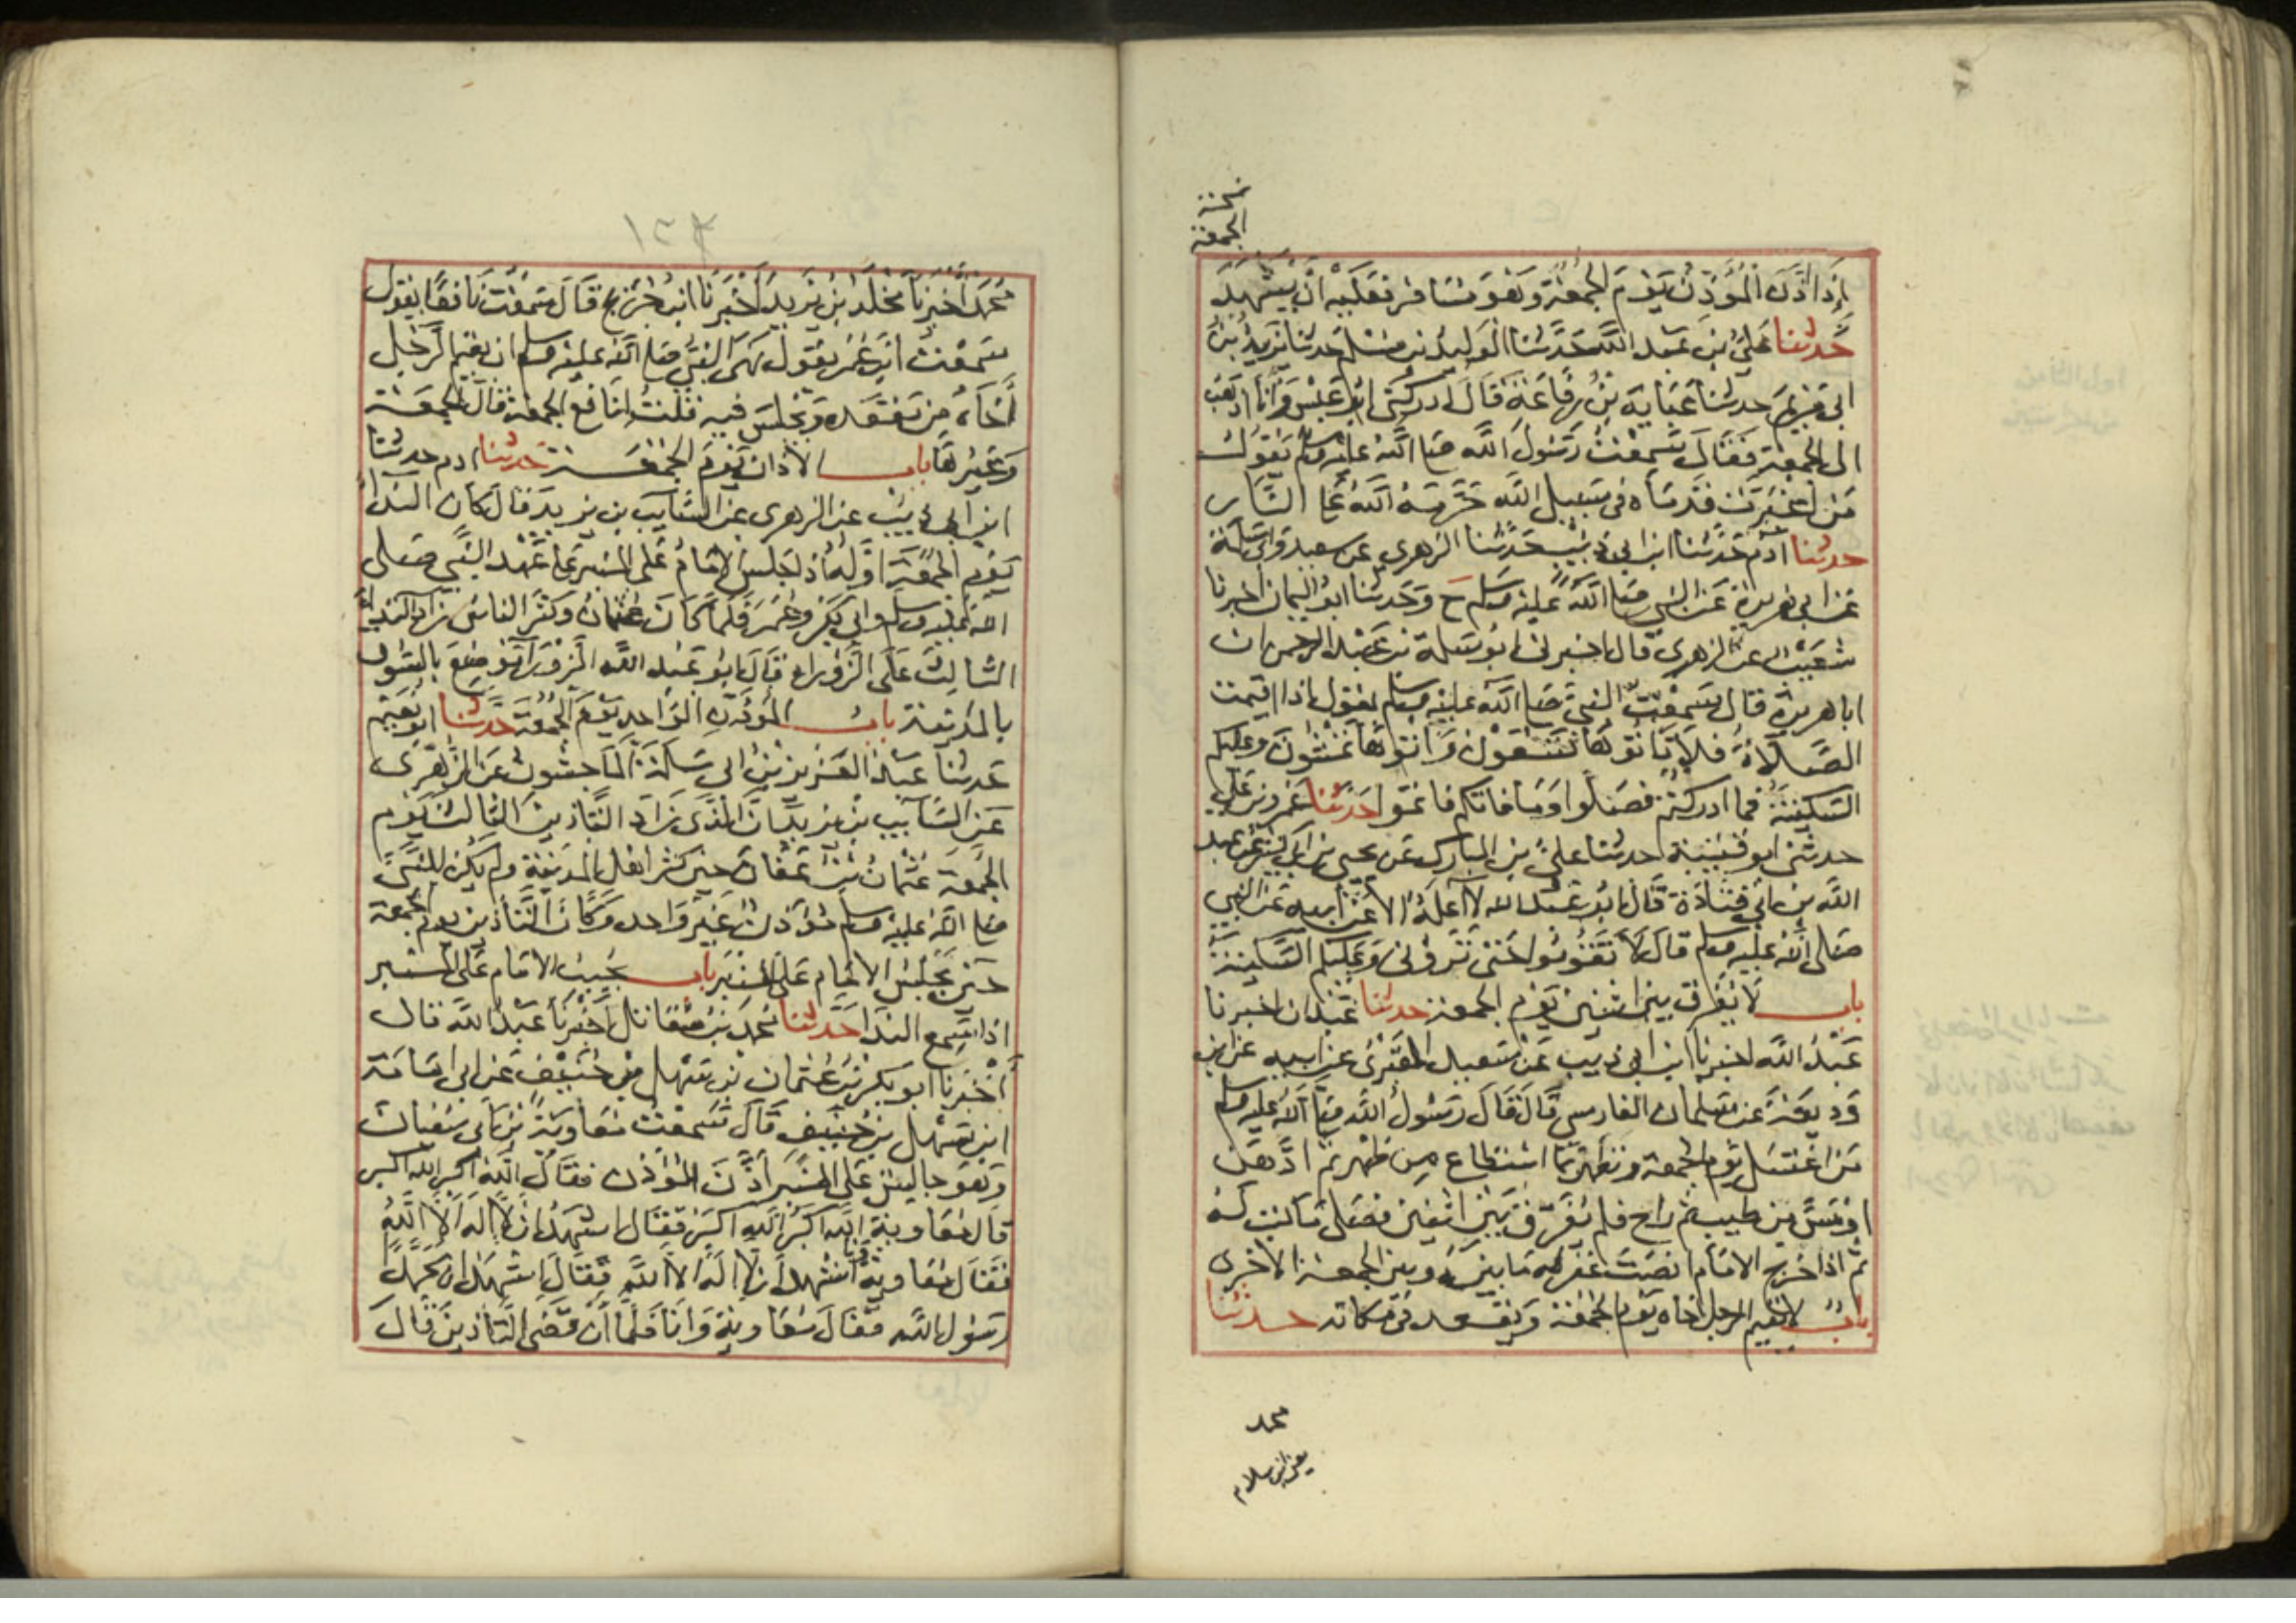 نسخة
الجمعة
إذا أذن المؤذن يوم الجمعة وهو مسافر فعليه أن يشهد
حدثنا علي بن عبد الله حدثنا الوليد بن مسلم حدثنا يزيد بن
ابي مريم حدثنا عباية بن رفاعة قال ادركني ابو عبس وأنا اذهب
الى الجمعة فقال سمعت رسول الله صلى الله عليه وسلم يقول
من اغبرت قدماه في سبيل الله حرمه الله على النار
حدثنا آدم حدثنا ابن ابي ذئب حدثنا الزهري عن سعيد وابي سلمة
عن ابي هريرة عن النبي صلى الله عليه وسلم ح وحدثنا ابو اليمان اخبرنا
شعيب عن الزهري قال اخبرني ابو سلمة بن عبد الرحمن ان
ابا هريرة قال سمعت النبي صلى الله عليه وسلم يقول إذا اقيمت
الصلاة فلا تأتوها تسعون وأتوها تمشون وعليكم
السكينة فما ادركتم فصلوا وما فاتكم فاتموا حدثنا عمرو بن علي
حدثني ابو قتيبة حدثنا علي بن المبارك عن يحيى بن ابي كثير عن عبد
الله بن ابي قتادة قال ابو عبد الله لا أعلمه الا عن أبيه عن النبي
صلى الله عليه وسلم قال لا تقوموا حتى تروني وعليكم السكينة
باب لا يفرق بين اثنين يوم الجمعة حدثنا عبدان اخبرنا
عبد الله اخبرنا ابن ابي ذيب عن سعيد المقبري عن ابيه عن ابن
وديعة عن سلمان الفارسي قال قال رسول الله صلى الله عليه وسلم
من اغتسل يوم الجمعة وتطهر بما استطاع من طهر ثم ادهن
او مس من طيب ثم راح فلم يفرق بين اثنين فصلى ما كتب له
ثم اذا خرج الامام انصت غفر له ما بينه وبين الجمعة الاخرى
باب لا يقيم الرجل اخاه يوم الجمعة ويقعد في مكانه حدثنا
محمد
يعني ابن سلام
محمد أخبرنا مخلد بن يزيد أخبرنا ابن جريج قال سمعت نافعا يقول
سمعت ابن عمر يقول نهى النبي صلى الله عليه وسلم ان يقيم الرجل
أخاه من مقعده ويجلس فيه قلت لنافع الجمعة قال الجمعة
وغيرها باب الأذان يوم الجمعة حدثنا ادم حدثنا
ابن ابي ذيب عن الزهري عن السايب بن يزيد قال كان النداء
يوم الجمعة أوله إذا جلس الإمام على المنبر على عهد النبي صلى
الله عليه وسلم وابي بكر وعمر فلما كان عثمان وكثر الناس زاد النداء
الثالث على الزوراء قال ابو عبد الله الزوراء موضع بالسوق
بالمدينة باب المؤذن الواحد يوم الجمعة حدثنا ابو نعيم
حدثنا عبد العزيز بن ابي سلمة الماجشون عن الزهري
عن السايب بن يزيد ان الذي زاد التأذين الثالث يوم
الجمعة عثمان بن عفان حين كثر اهل المدينة ولم يكن للنبي
صلى الله عليه وسلم مؤذن غير واحد وكان التأذين يوم الجمعة
حين يجلس الامام على المنبر باب يجيب الامام على المنبر
اذا سمع النداء حدثنا محمد بن مقاتل أخبرنا عبد الله قال
أخبرنا ابو بكر بن عثمان بن سهل بن حنيف عن ابي امامة
ابن سهل بن حنيف قال سمعت معاوية بن ابي سفيان
وهو جالس على المنبر أذن المؤذن فقال الله أكبر الله اكبر
قال معاوية الله اكبر الله اكبر فقال اشهد ان لا إله إلا الله
فقال معاوية وأنا اشهد أن لا إله إلا الله فقال اشهد ان محمدا
رسول الله فقال معاوية وأنا فلما أن قضى التأذين قال